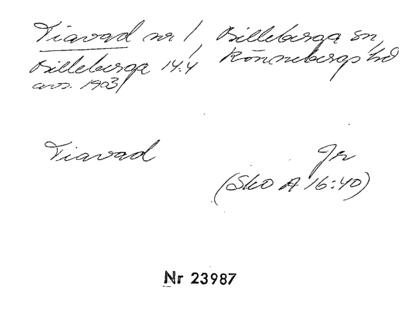 Tiavad nr 1, Billeberga sn,
Billeberga 14:4 Rönnebergs hd
avs. 1931
Tiavad Jr
(Sko A 16:40)
Nr 23987